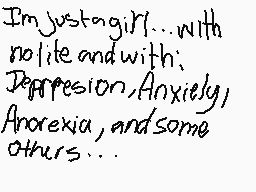 Im just a girl... with
no life and with:
Deppresion, Anxiety,
Anorexia, and some
others...